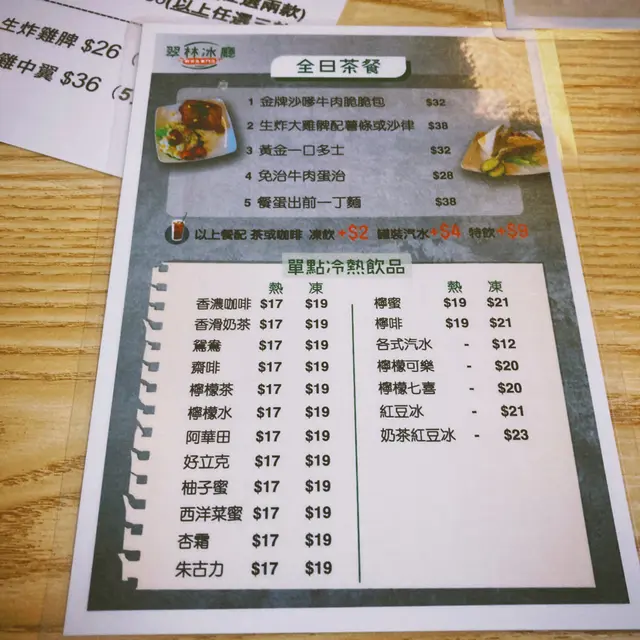 以上任選三款)
選兩款)
生炸雞脾 $26 (
雞中翼 $36 (5
翠林冰廳
全日茶餐
1 金牌沙嗲牛肉脆脆包 $32
2 生炸大雞髀配薯條或沙律 $38
3 黃金一口多士 $32
4 免治牛肉蛋治 $28
5 餐蛋出前一丁麵 $38
以上餐配 茶或咖啡 凍飲+$2 罐裝汽水+$4 特飲+$8
單點冷熱飲品
熱 凍
香濃咖啡 $17 $19
香滑奶茶 $17 $19
鴛鴦 $17 $19
齋啡 $17 $19
檸檬茶 $17 $19
檸檬水 $17 $19
阿華田 $17 $19
好立克 $17 $19
柚子蜜 $17 $19
西洋菜蜜 $17 $19
杏霜 $17 $19
朱古力 $17 $19
熱 凍
檸蜜 $19 $21
檸啡 $19 $21
各式汽水 - $12
檸檬可樂 - $20
檸檬七喜 - $20
紅豆冰 - $21
奶茶紅豆冰 - $23